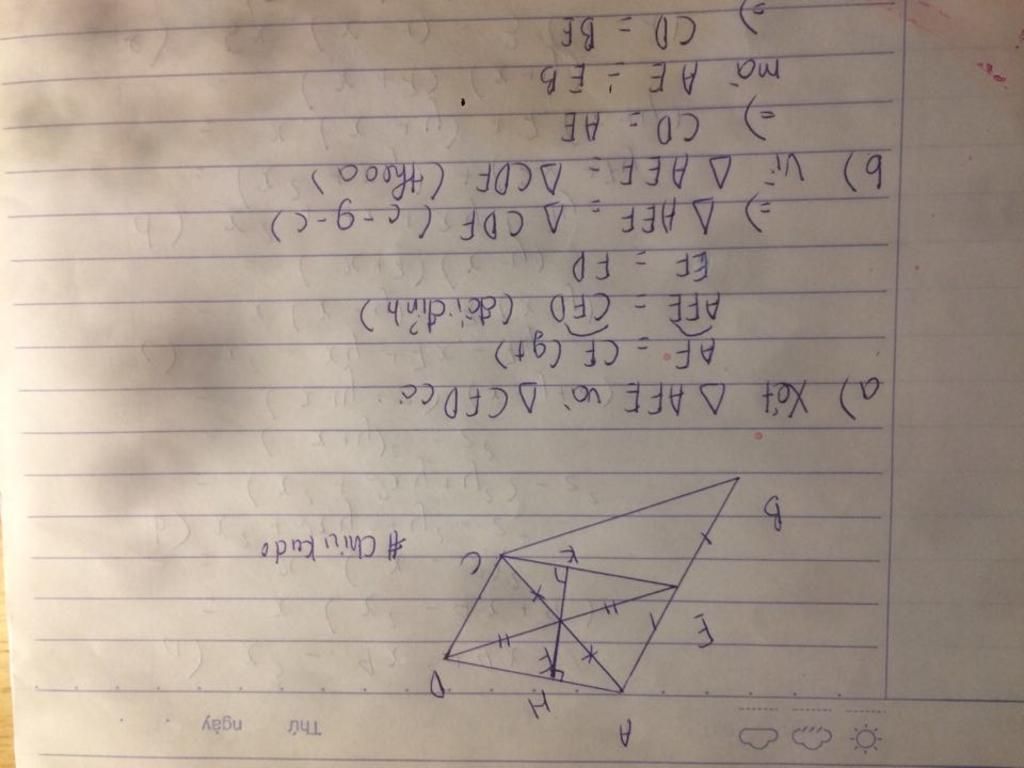 Thứ ngày
A
H
D
F
E
K
C
B
#Chiyukudo
a) Xét △ AFE và △ CFD có
AF = CF (gt)
AFE = CFD (đối đỉnh)
EF = FD
=) △ AEF = △ CDF (c-g-c)
b) Vì △ AEF = △ CDF (theo a)
=) CD = AE
mà AE = EB
=) CD = BE